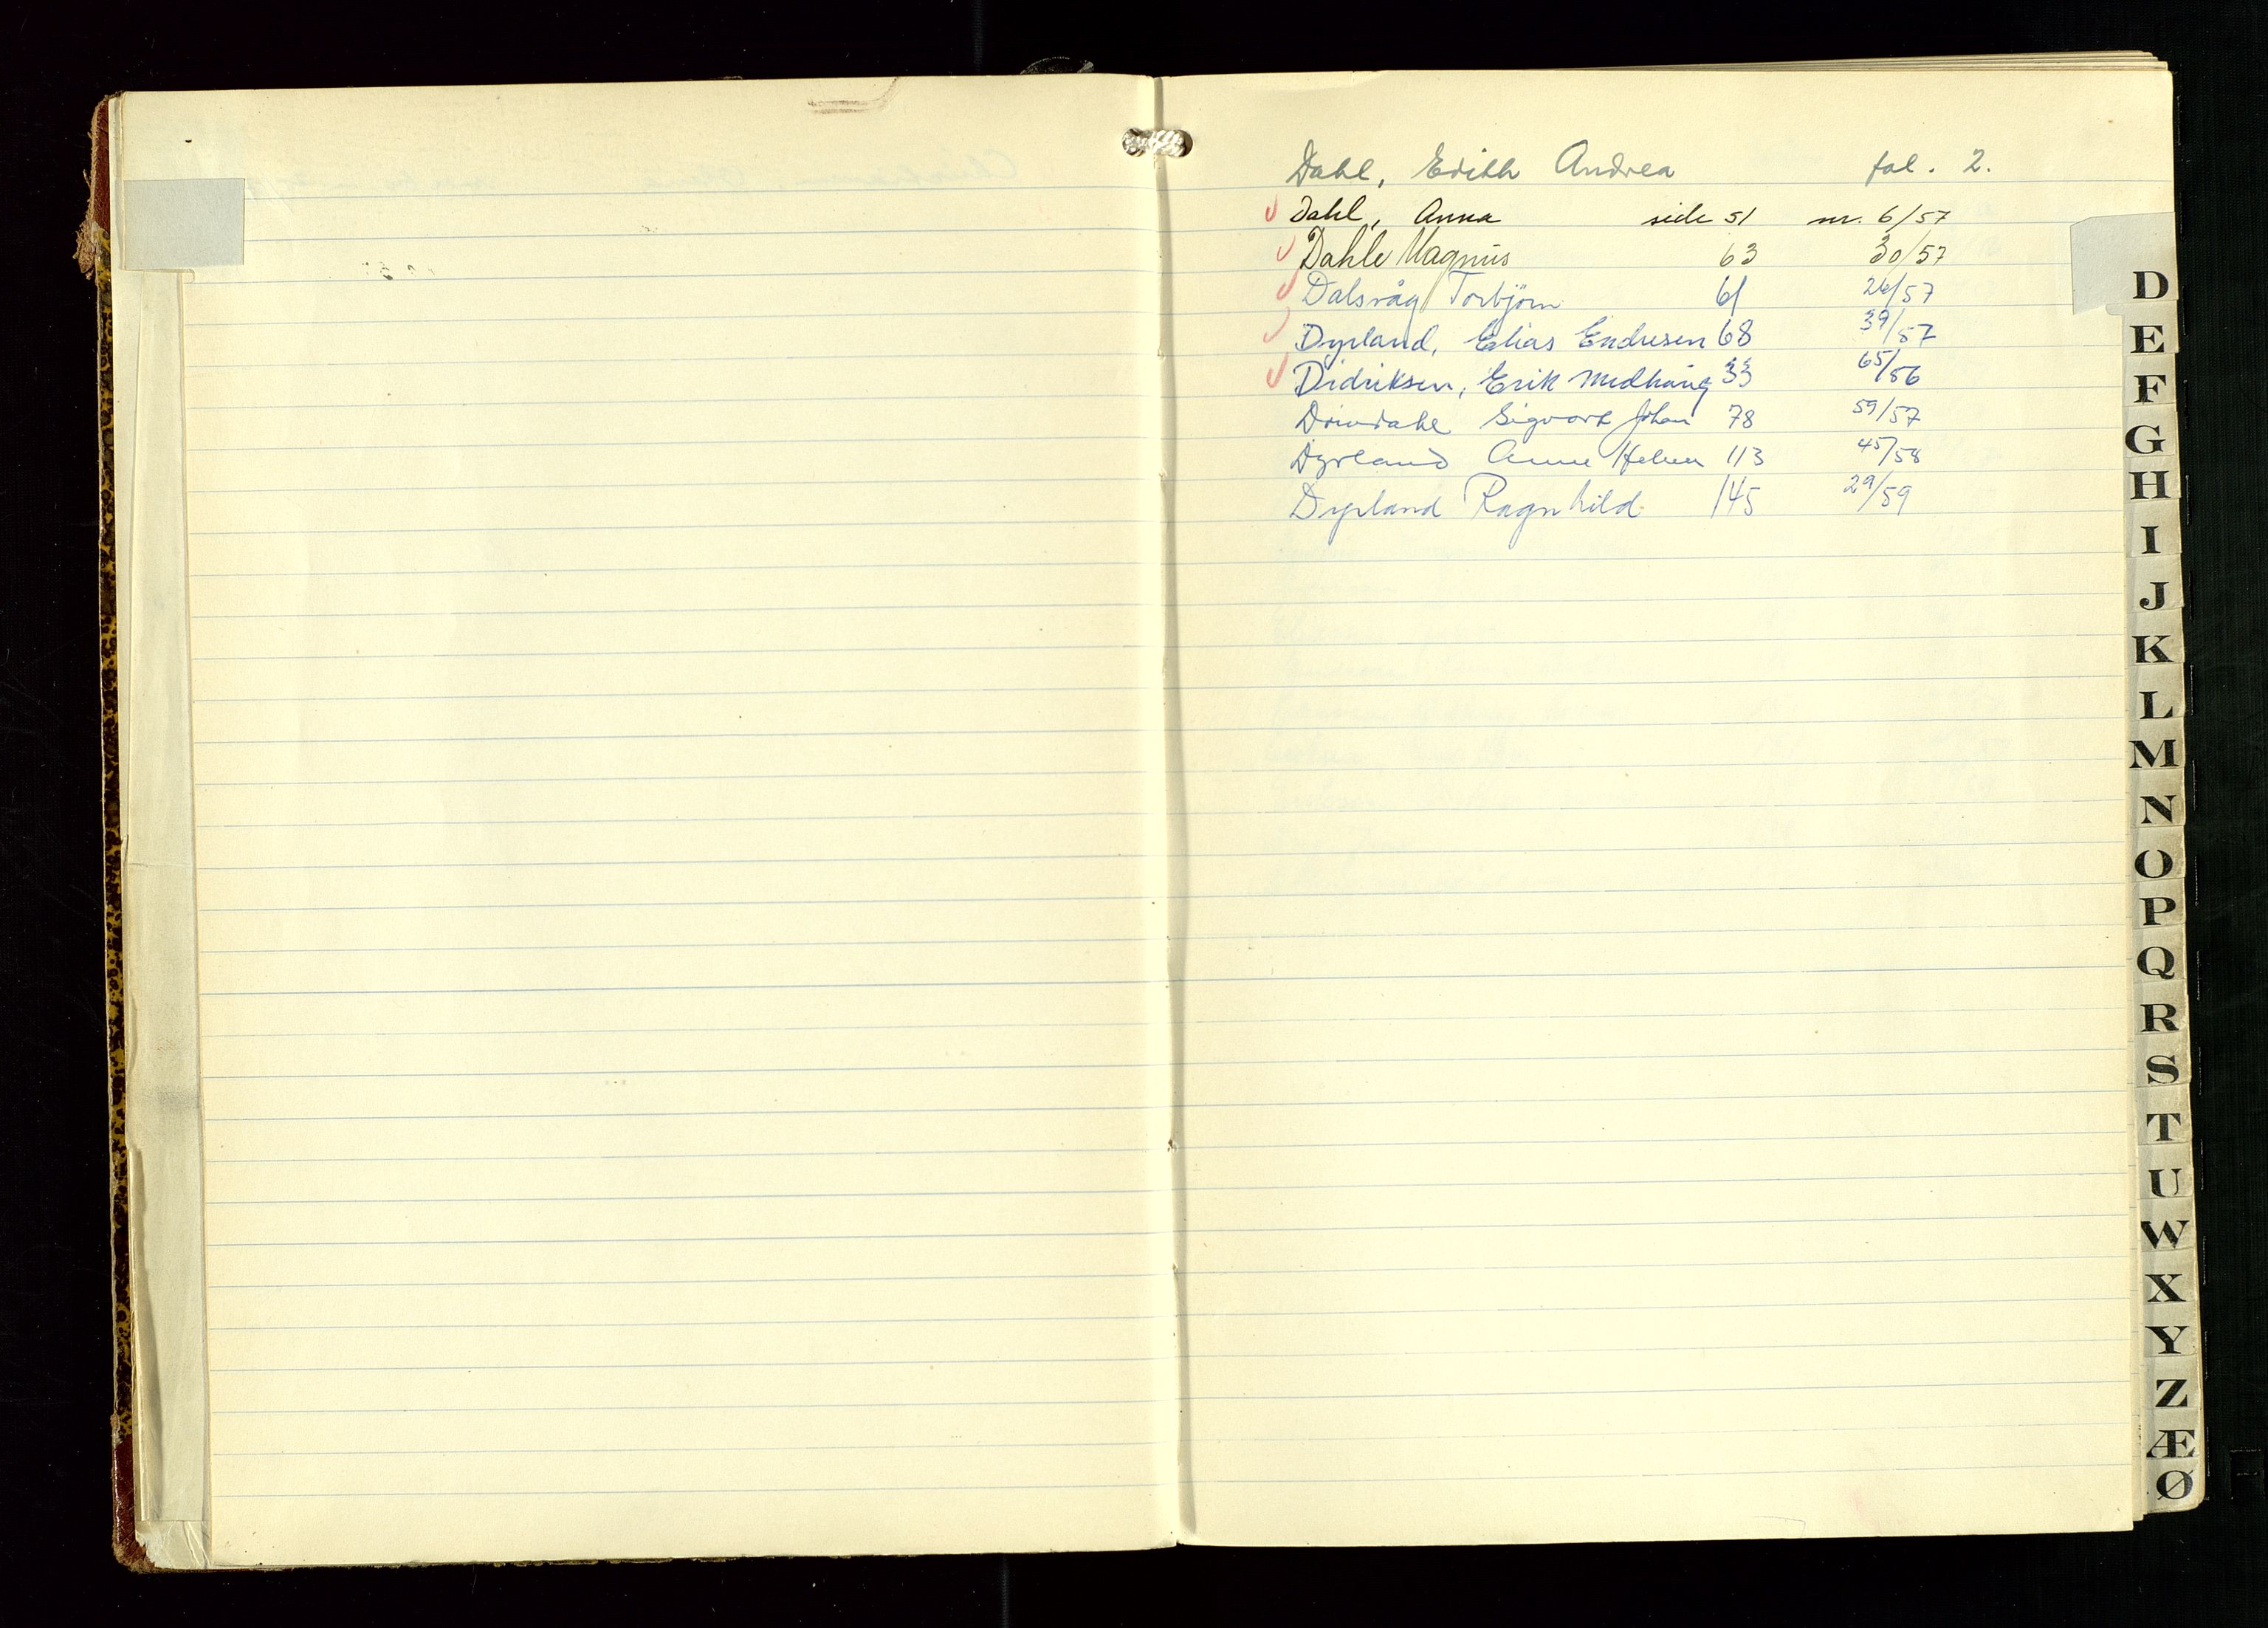 Dahl, Edith Andrea fol. 2.
Dahl, Anna side 51 nr. 6/57
Dahle Magnus 63 30/57
Dalsvåg Torbjörn 61 26/57
Dyrland, Elias Endresen 68 39/57
Didriksen, Erik Medhaug 33 65/56
Sigvart Johan 78 59/57
Dyrland Anne Helen 113 45/58
Dyrland Ragnhild 145 29/59
D
E
F
G
H
I
J
K
L
M
N
O
P
Q
R
S
T
U
W
X
Y
Z
Æ
Ø